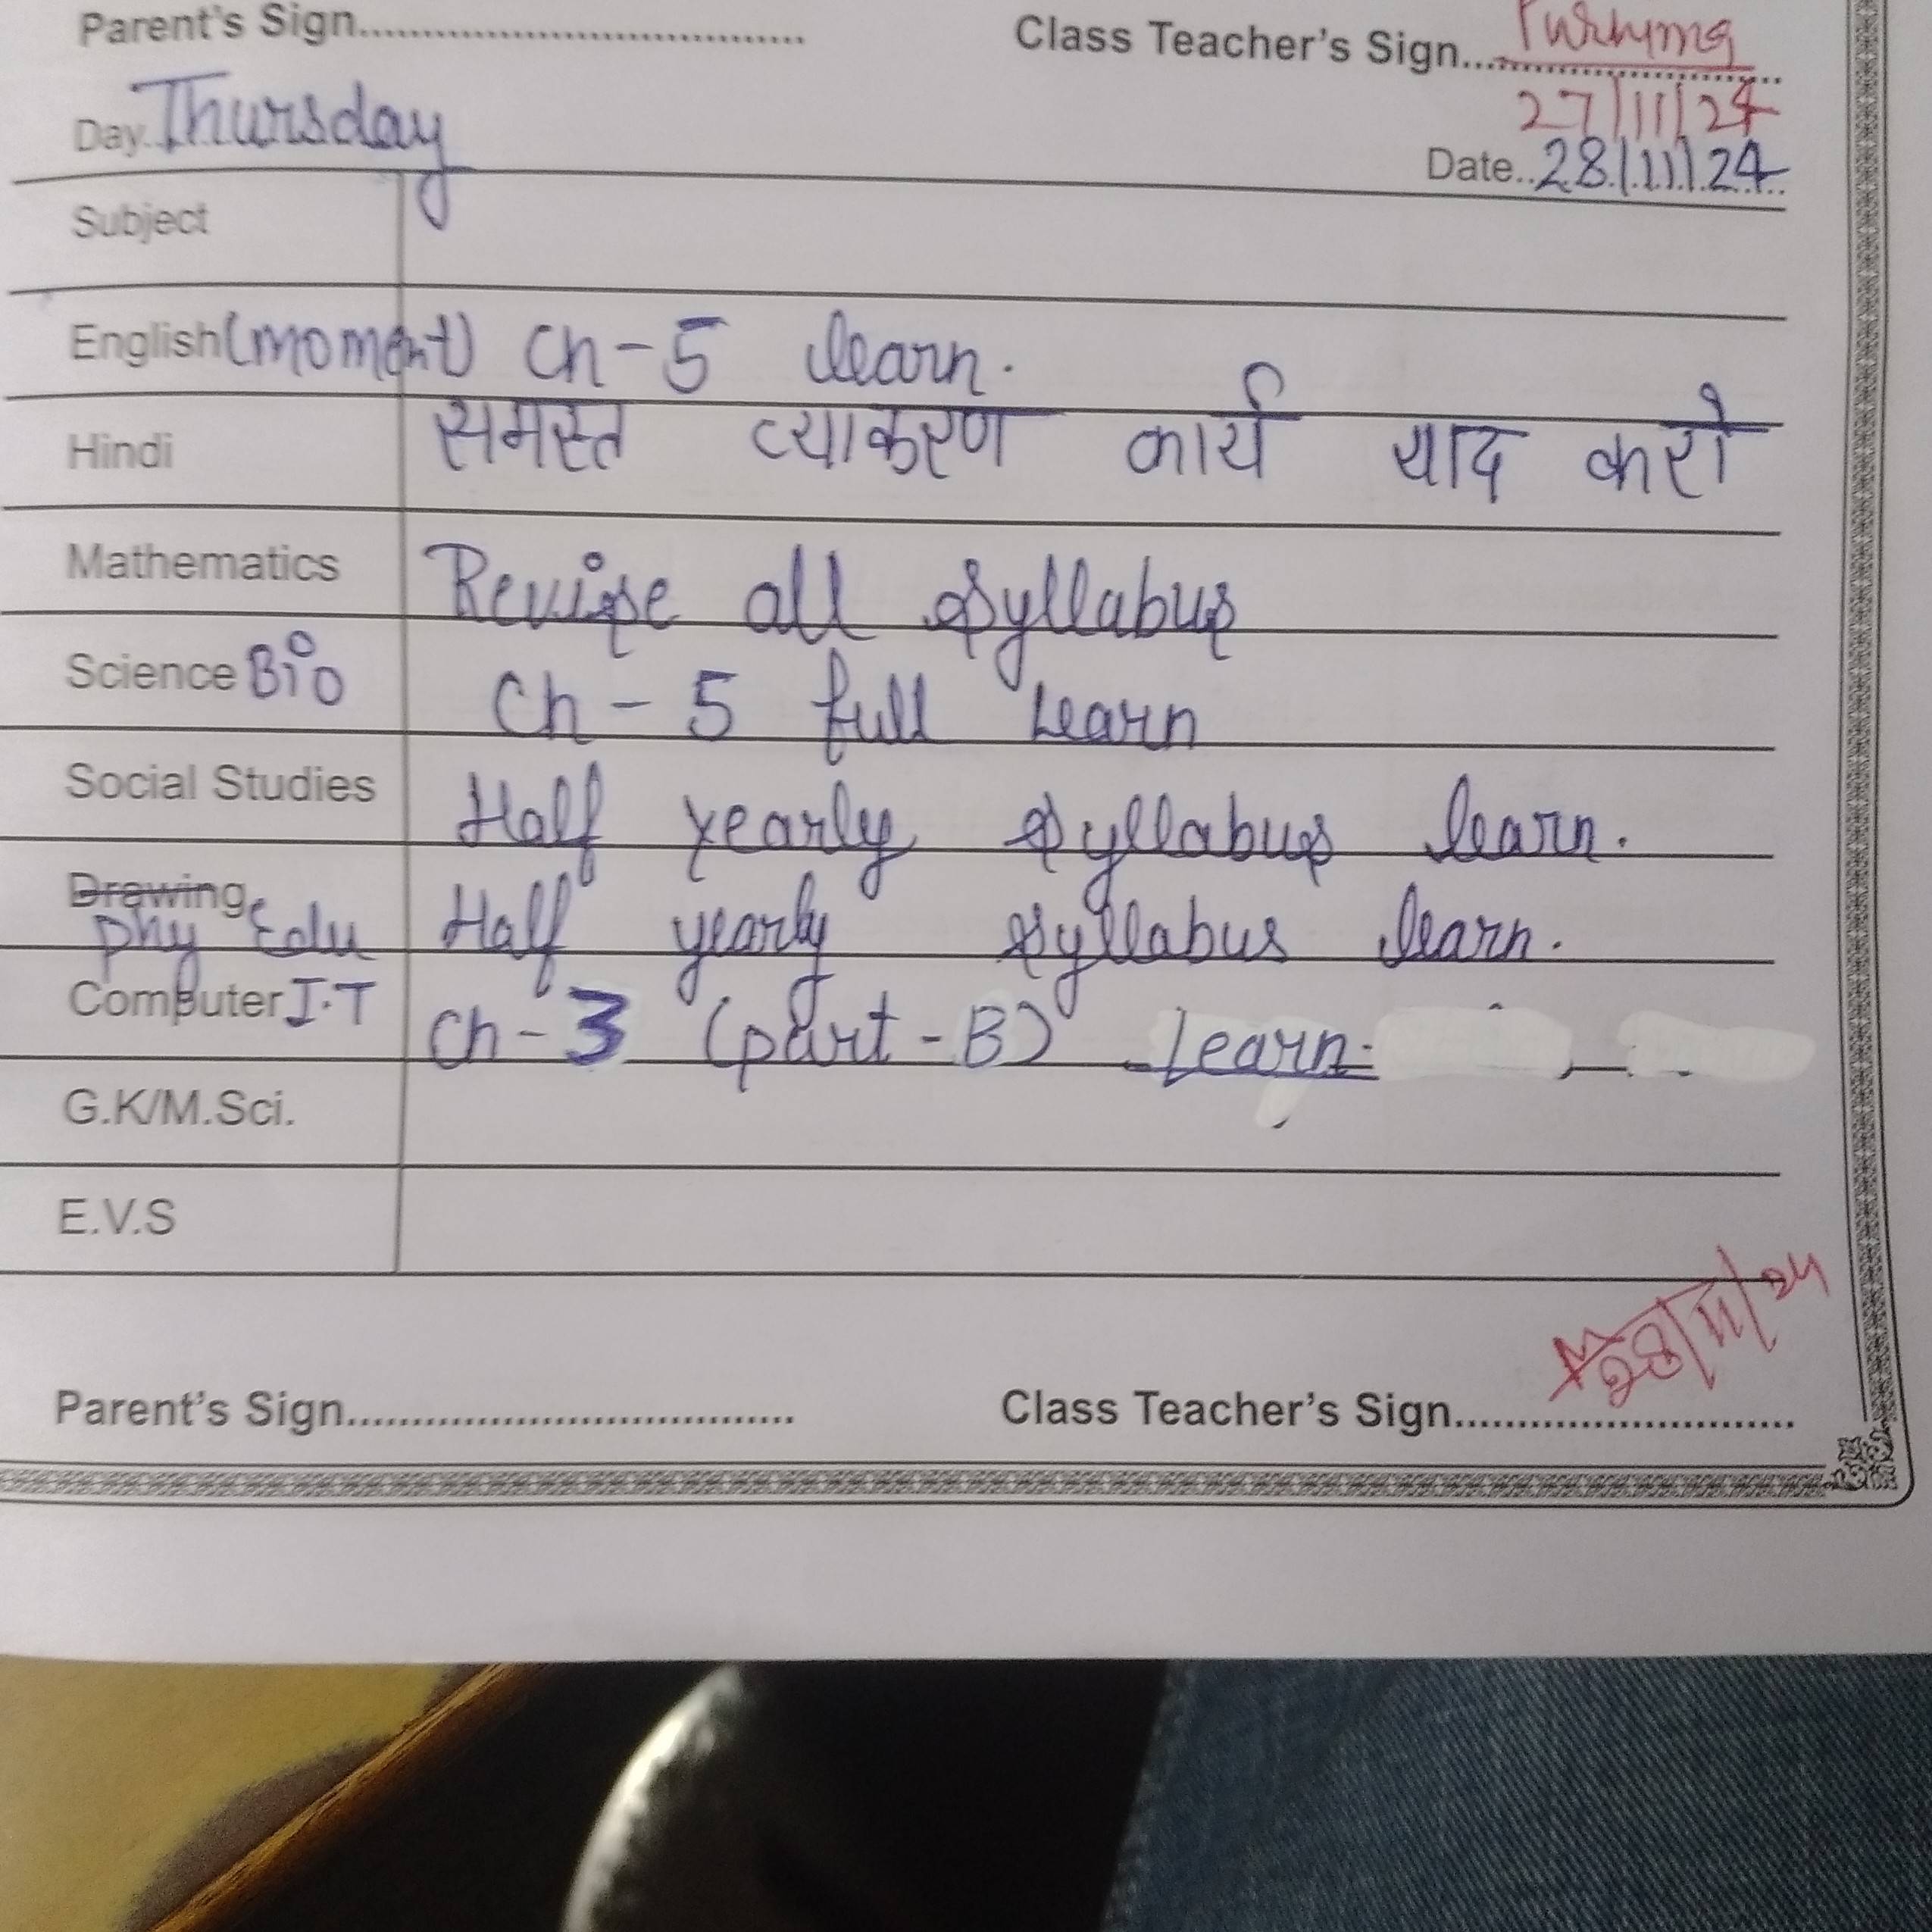 Parent's Sign.................................... Class Teacher's Sign.... Purnima
27/11/24
Day. Thursday Date.. 28/11/24
Subject
English (moment) Ch-5 learn.
Hindi समस्त व्याकरण कार्य याद करो
Mathematics Revise all syllabus
Science Bio Ch-5 full learn
Social Studies Half yearly syllabus learn.
Drawing
Phy Edu Half yearly syllabus learn.
Computer I.T Ch-3 (part-B) Learn.
G.K/M.Sci.
E.V.S
28/11/24
Parent's Sign.................................... Class Teacher's Sign...........................